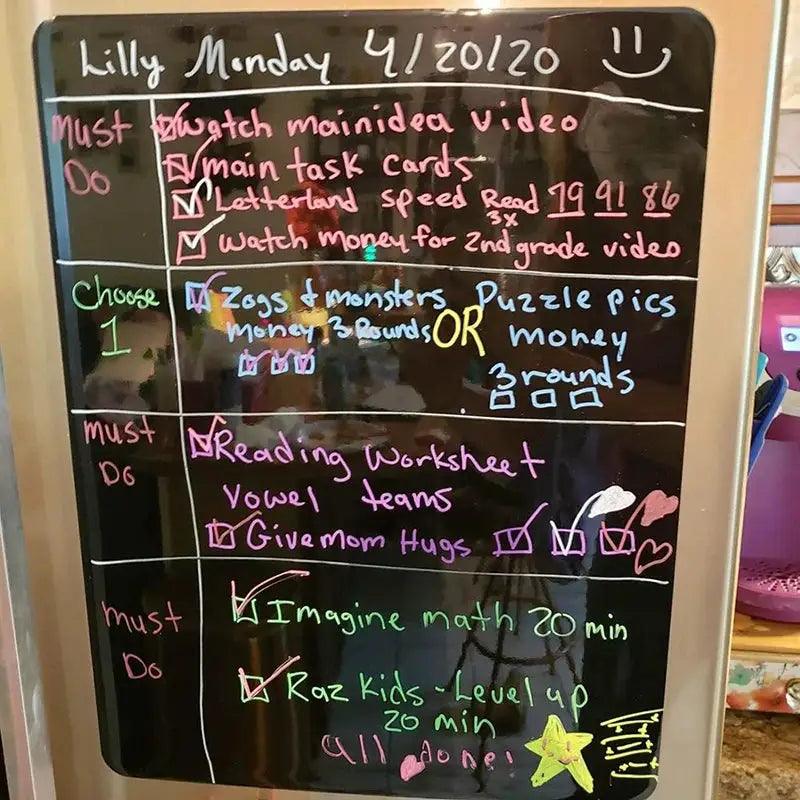 Lilly Monday 4/20/20
Must Do
Watch mainidea video
main task cards
Letterland speed Read 79 91 86
3x
Watch Money for 2nd grade video
Choose 1
Zogs & monsters
Money 3 Rounds
OR
Puzzle pics
money
3 rounds
Must Do
Reading Worksheet
vowel teams
Give mom Hugs
must Do
Imagine math 20 min
Raz Kids - Level up
20 min
all done!